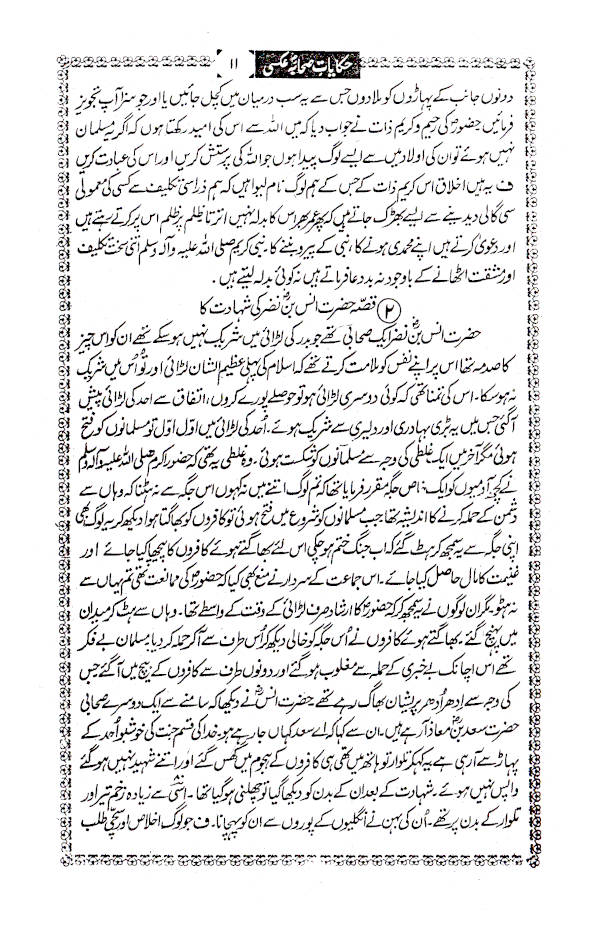 حکایات صحابہؓ عکسی ۱۱
دونوں جانب کے پہاڑوں کو ملا دوں جس سے یہ سب درمیان میں کچل جائیں یا اور جو سزا آپ تجویز
فرمائیں حضورؐ کی رحیم و کریم ذات نے جواب دیا کہ میں اللہ سے اس کی امید رکھتا ہوں کہ اگر یہ مسلمان
نہیں ہوئے تو ان کی اولاد میں سے ایسے لوگ پیدا ہوں جو اللہ کی پرستش کریں اور اس کی عبادت کریں
ف یہ ہیں اخلاق اس کریم ذات کے جس کے ہم لوگ نام لیوا ہیں کہ ہم ذرا سی تکلیف سے کسی کی معمولی
سی گالی دیدینے سے ایسے بھڑک جاتے ہیں کہ پھر عمر بھر اس کا بدلہ نہیں اترتا ظلم پر ظلم اس پر کرتے رہتے ہیں
اور دعویٰ کرتے ہیں اپنے محمدی ہونے کا، نبی کے پیرو بننے کا۔ نبی کریم صلی اللہ علیہ و آلہ وسلم اتنی سخت تکلیف
اور مشقت اٹھانے کے باوجود نہ بددعا فرماتے ہیں نہ کوئی بدلہ لیتے ہیں ۔
۲ قصّہ حضرت انس بنؓ نضر کی شہادت کا
حضرت انس بنؓ نضر ایک صحابی تھے جو بدر کی لڑائی میں شریک نہیں ہوسکے تھے ان کو اس چیز
کا صدمہ تھا اس پر اپنے نفس کو ملامت کرتے تھے کہ اسلام کی پہلی عظیم الشان لڑائی اور تُو اُس میں شریک
نہ ہو سکا۔ اس کی تمنا تھی کہ کوئی دوسری لڑائی ہو تو حوصلے پورے کروں، اتفاق سے احد کی لڑائی پیش
آگئی جس میں یہ بڑی بہادری اور دلیری سے شریک ہوئے۔ اُحد کی لڑائی میں اول اول تو مسلمانوں کو فتح
ہوئی مگر آخر میں ایک غلطی کی وجہ سے مسلمانوں کو شکست ہوئی، وہ غلطی یہ تھی کہ حضور اکرم صلی اللہ علیہ و آلہ وسلم
نے کچھ آدمیوں کو ایک خاص جگہ مقرر فرمایا تھا کہ تم لوگ اتنے میں نہ کہوں اس جگہ سے نہ ہٹنا کہ وہاں سے
دشمن کے حملہ کرنے کا اندیشہ تھا جب مسلمانوں کو شروع میں فتح ہوئی تو کافروں کو بھاگتا ہوا دیکھ کر یہ لوگ بھی
اپنی جگہ سے یہ سمجھ کر ہٹ گئے کہ اب جنگ ختم ہو چکی اس لئے بھاگتے ہوئے کافروں کا پیچھا کیا جائے اور
غنیمت کا مال حاصل کیا جائے۔ اس جماعت کے سردار نے منع بھی کیا کہ حضورؐ کی ممانعت تھی تم یہاں سے
نہ ہٹو مگر ان لوگوں نے یہ سمجھ کر کہ حضورؐ کا ارشاد صرف لڑائی کے وقت کے واسطے تھا۔ وہاں سے ہٹ کر میدان
میں پہنچ گئے، بھاگتے ہوئے کافروں نے اُس جگہ کو خالی دیکھ کر اُس طرف سے آکر حملہ کر دیا مسلمان بے فکر
تھے اس اچانک بے خبری کے حملہ سے مغلوب ہو گئے اور دونوں طرف سے کافروں کے بیچ میں آگئے جس
کی وجہ سے اِدھر اُدھر پریشان بھاگ رہے تھے حضرت انسؓ نے دیکھا کہ سامنے سے ایک دوسرے صحابی
حضرت سعد بنؓ معاذ آرہے ہیں۔ ان سے کہا کہ اے سعد کہاں جا رہے ہو۔ خدا کی قسم جنت کی خوشبو اُحد کے
پہاڑ سے آرہی ہے یہ کہہ کر تلوار تو ہاتھ میں تھی ہی کافروں کے ہجوم میں گھس گئے اور اتنے شہید نہیں ہو گئے
واپس نہیں ہوئے۔ شہادت کے بعد ان کے بدن کو دیکھا گیا تو چھلنی ہو گیا تھا۔ اسّی سے زیادہ زخم تیر اور
تلوار کے بدن پر تھے۔ اُن کی بہن نے انگلیوں کے پوروں سے ان کو پہچانا۔ ف جو لوگ اخلاص اور سچی طلب